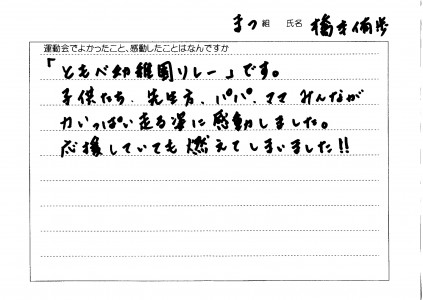 まつ 組 氏名 橋本侑歩
運動会でよかったこと、感動したことはなんですか
「ともべ幼稚園リレー」です。
子供たち、先生方、パパ、ママ みんなが
力いっぱい走る姿に感動しました。
応援していても燃えてしまいました!!